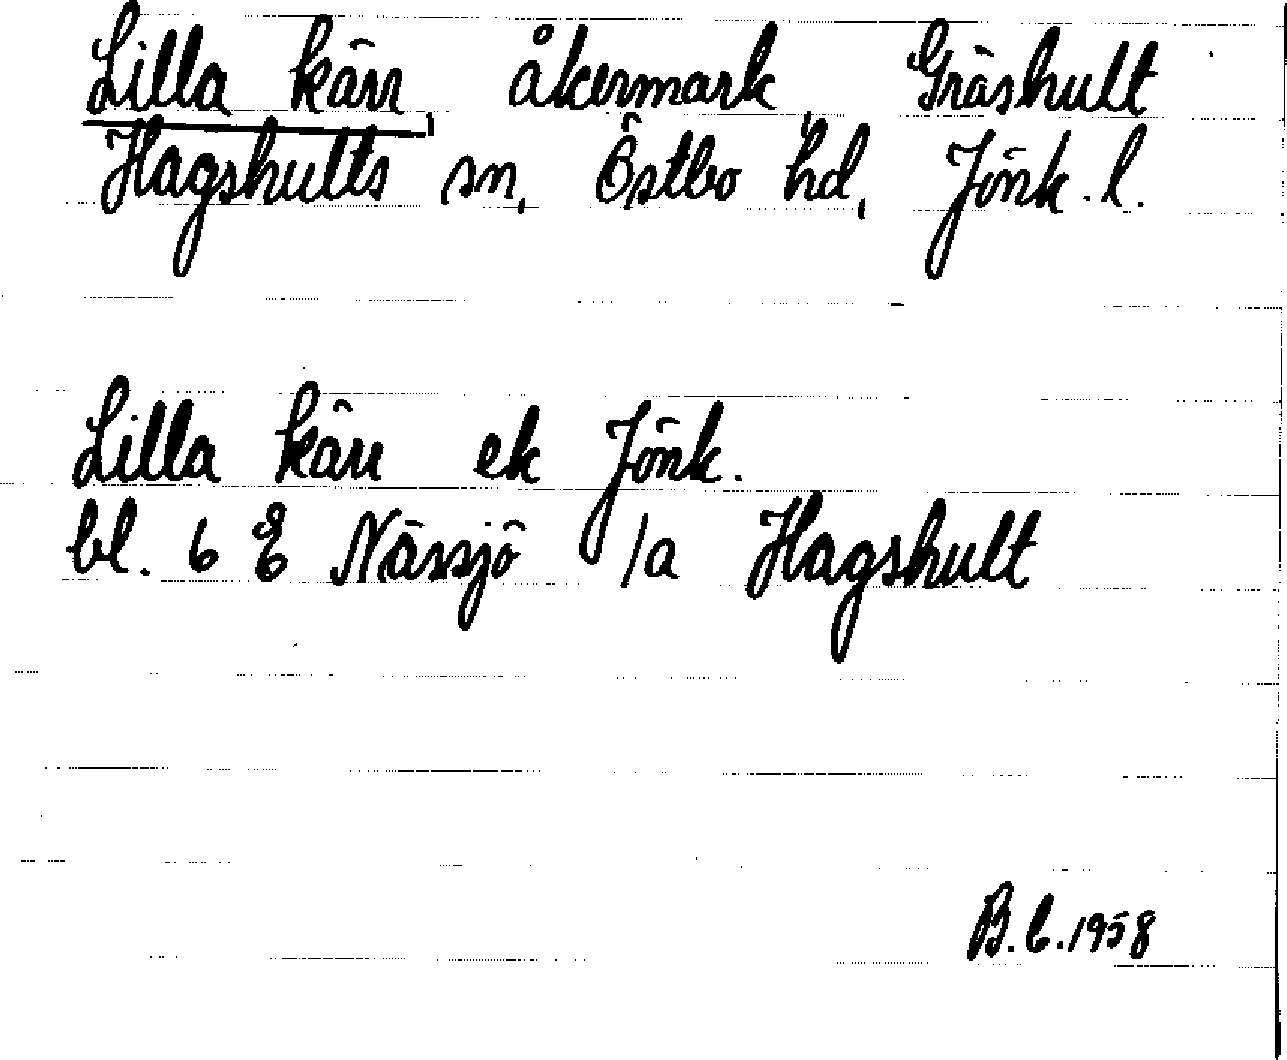 Lilla kärr, åkermark, Gräshult
Hagshults sn, Östbo hd, Jönk. l.
Lilla kärr ek Jönk.
bl. 6 E Nässjö /a Hagshult
B.C.1958